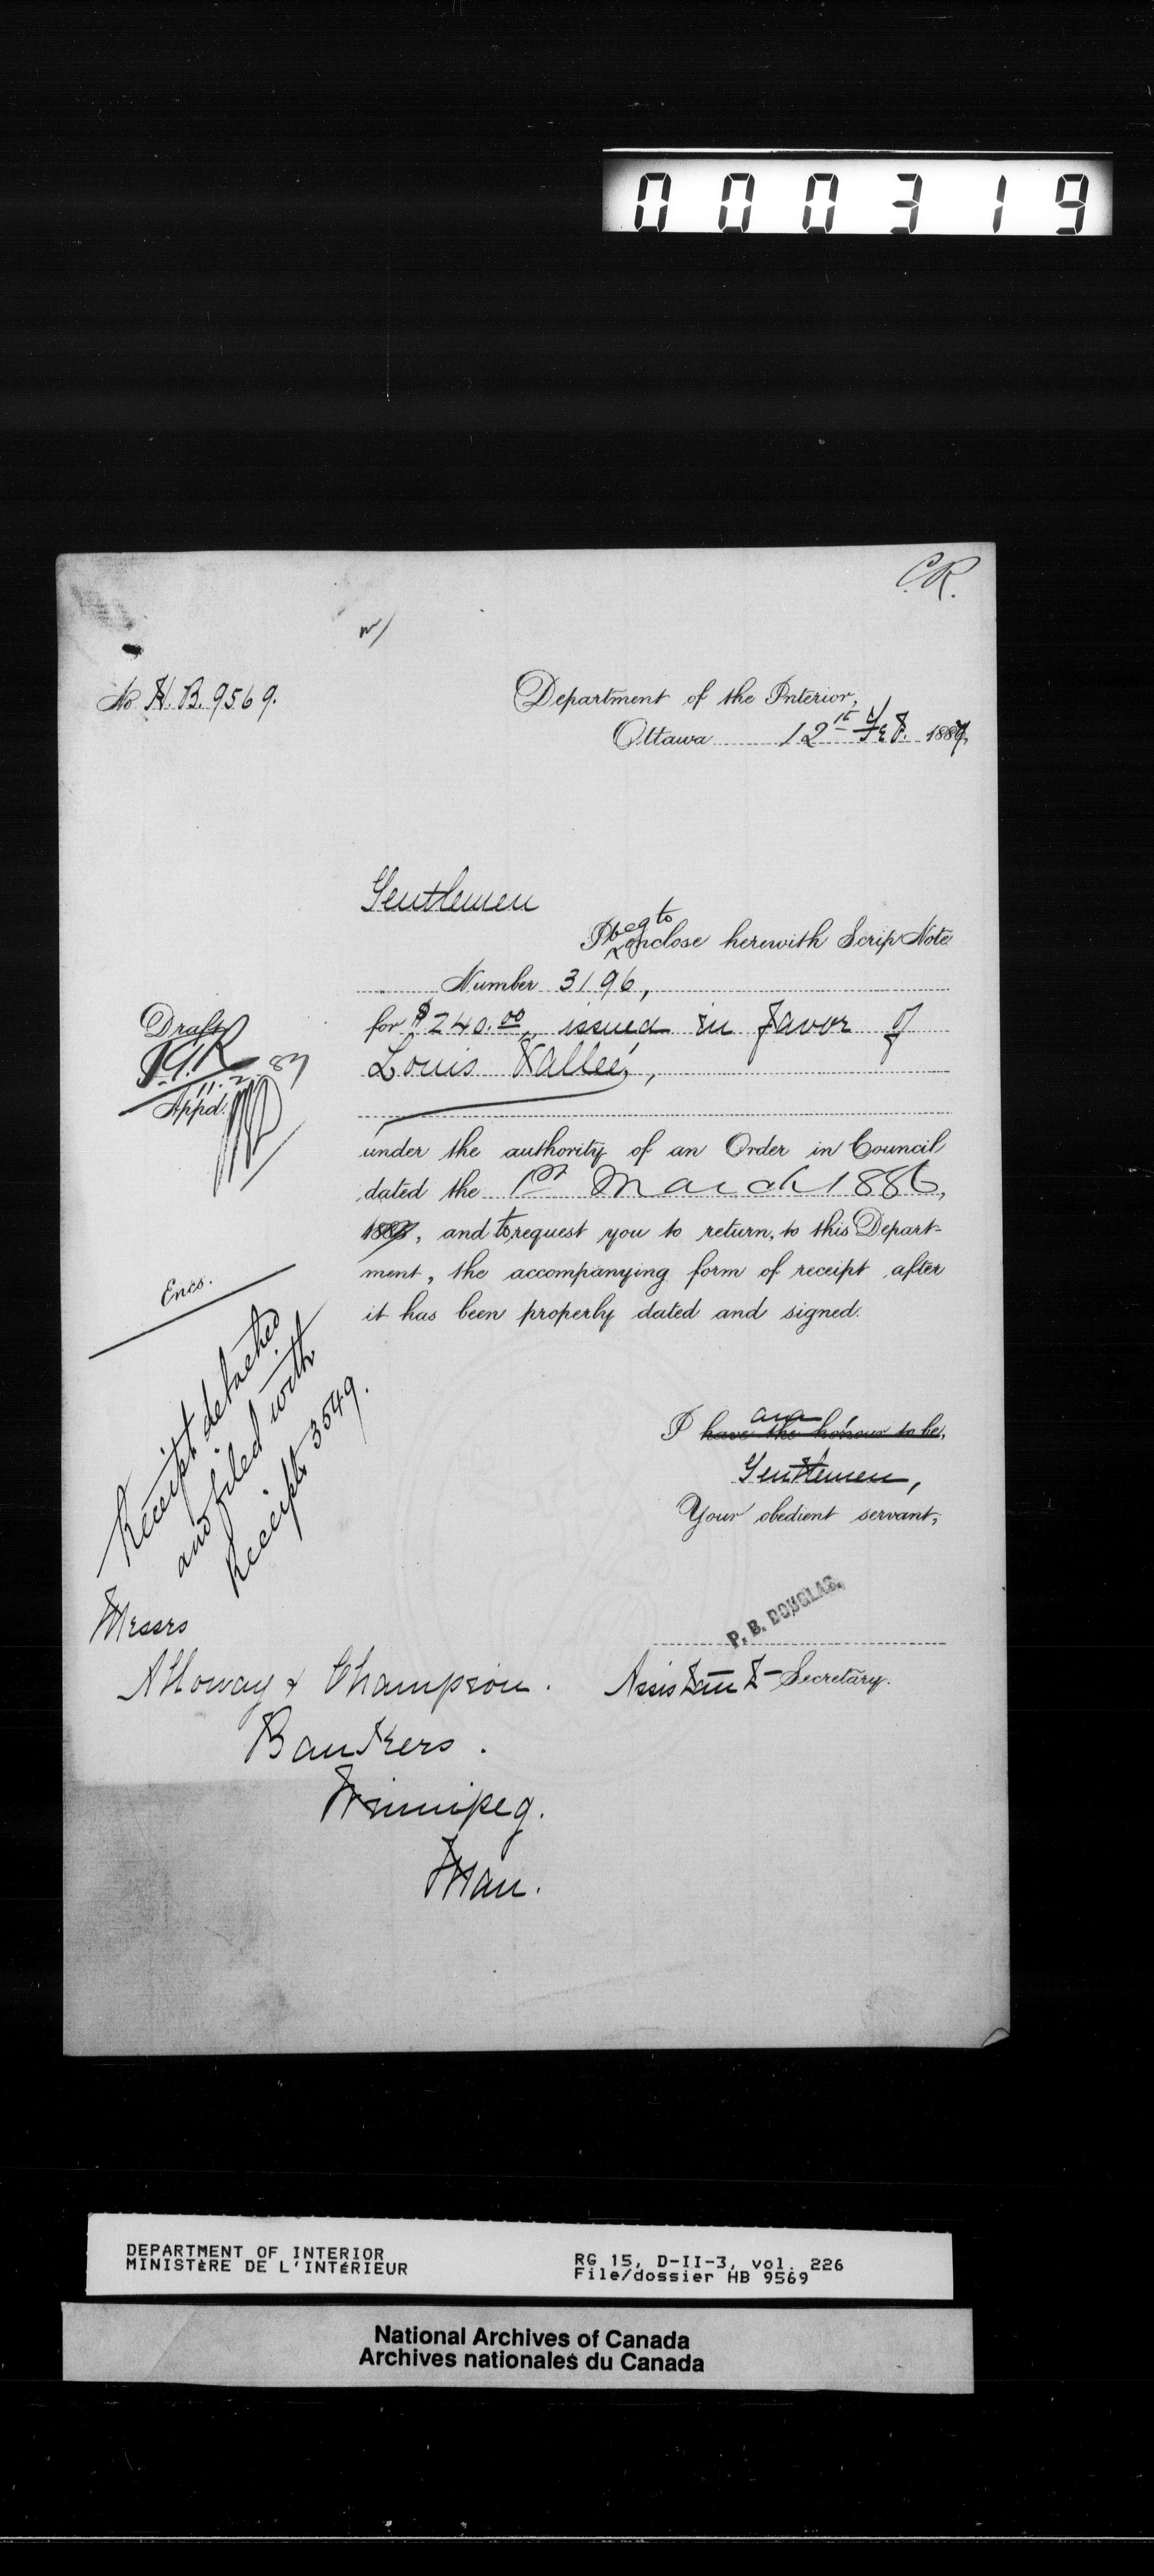 000319
C.R.
No H.B. 9569.
Department of the Interior,
Ottawa 12th Feb. 1887,
Gentlemen
I beg to enclose herewith Scrip Note
Number 3196,
for $240.00, issued in favor of
Louis Valleé,
Draft
11.2.87
Appd.
under the authority of an Order in Council
dated the 1st March 1886,
188, and to request you to return, to this Depart-
ment, the accompanying form of receipt after
it has been properly dated and signed.
Encs.
Receipt detached
and filed with
Receipt 3549.
I am
have the honour to be,
Gentlemen,
Your obedient servant,
P. B. DOUGLAS,
Assistant Secretary.
Messrs
Alloway & Champion.
Bankers.
Winnipeg.
Man.
DEPARTMENT OF INTERIOR
MINISTÈRE DE L'INTÉRIEUR
RG 15, D-II-3, vol. 226
File/dossier HB 9569
National Archives of Canada
Archives nationales du Canada